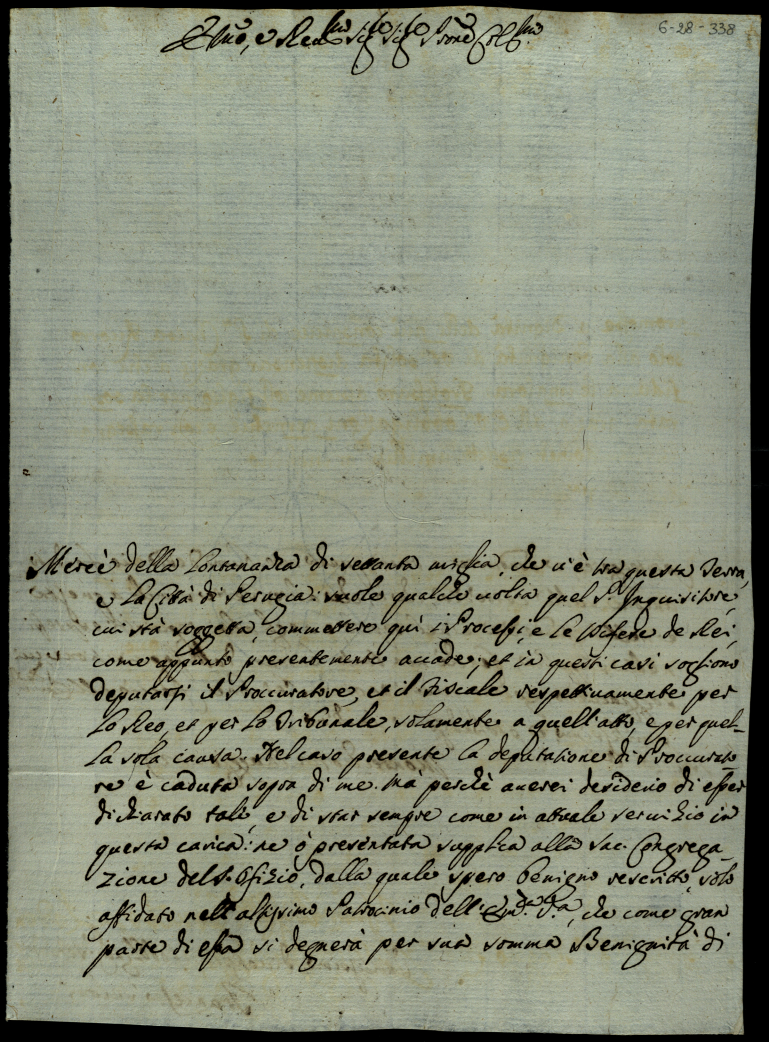 6-28-338
Emo, e Revmo Sigre Sigre Prone Colmo
Mercè della Lontananza di settanta miglia, che v'è tra questa Terra,
e la Città di Perugia: suole qualche volta quel P. Inquisitore,
cui stà soggetta, commettere quì i Processi, e le Difese de Rei,
come appunto presentemente accade; et in questi casi sogliono
deputarsi il Proccuratore, et il Fiscale respettivamente per
lo Reo, et per lo Tribunale, solamente a quell'atto, e per quel-
la sola causa. Nel caso presente la deputazione di Proccurato-
re è caduta sopra di me. Mà perchè averei desiderio di esser
dichiarato tale, e di star sempre come in attuale servizio in
questa carica: ne ò presentata supplica alla Sac. Congrega-
zione del S. Ofizio, dalla quale spero benigno rescritto, solo
affidato nell'altissimo Patrocinio dell'Emza Va, che come gran
parte di essa si degnerà per sua somma Benignità di